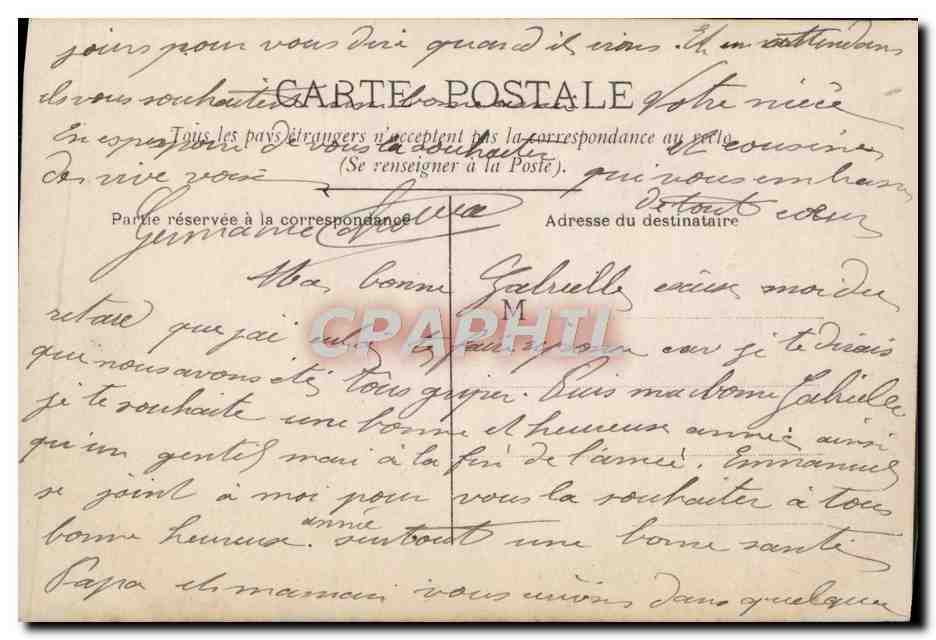 jours pour vous dire quand il irons. Et en attendant
CARTE POSTALE
ils vous souhaitent une bonne année Votre nièce
Tous les pays étrangers n'acceptent pas la correspondance au recto
En esperant de vous la souhaiter et cousine
(Se renseigner à la Poste).
de vive voix qui vous embrasse
de tout coeur
Partie réservée à la correspondance
Adresse du destinataire
Germaine
Ma bonne Gabrielle excuse moi du
M
CPAPHIL
retard que j'ai mis te faire reponse car je te dirais
que nous avons été tous griper. Puis ma bonne Gabrielle
je te souhaite une bonne et heureuse année ainsi
qu'un gentil mari à la fin de l'année. Emmanuel
se joint à moi pour vous la souhaiter à tous
bonne heureuse année. surtout une bonne santé
Papa et maman vous dans quelque